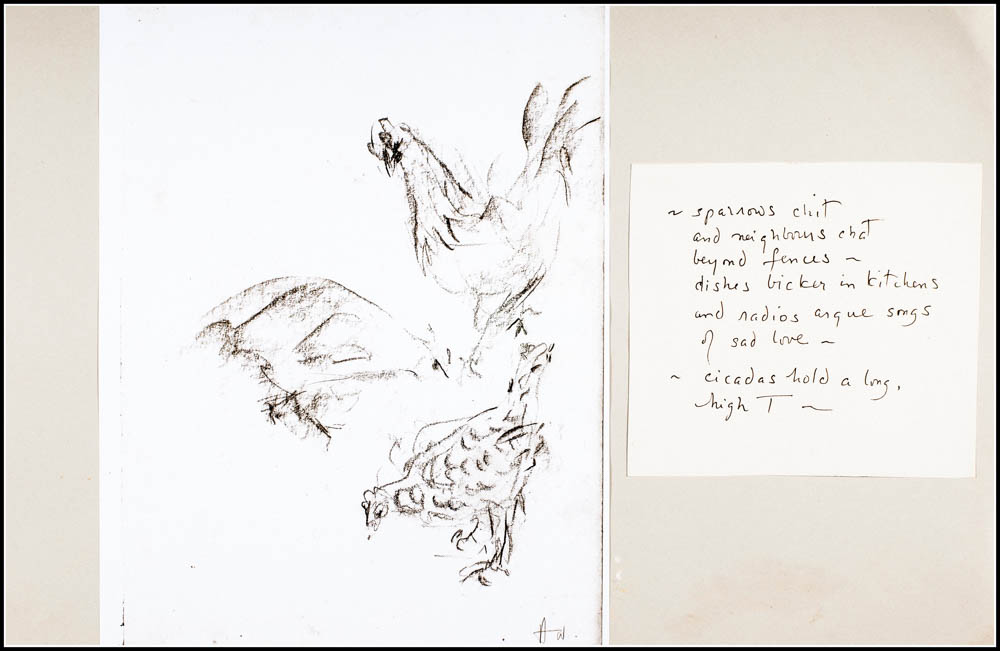 ~ sparrows chit
and neighbours chat
beyond fences ~
dishes bicker in kitchens
and radios argue songs
of sad love ~
~ cicadas hold a long,
high T ~
A w.